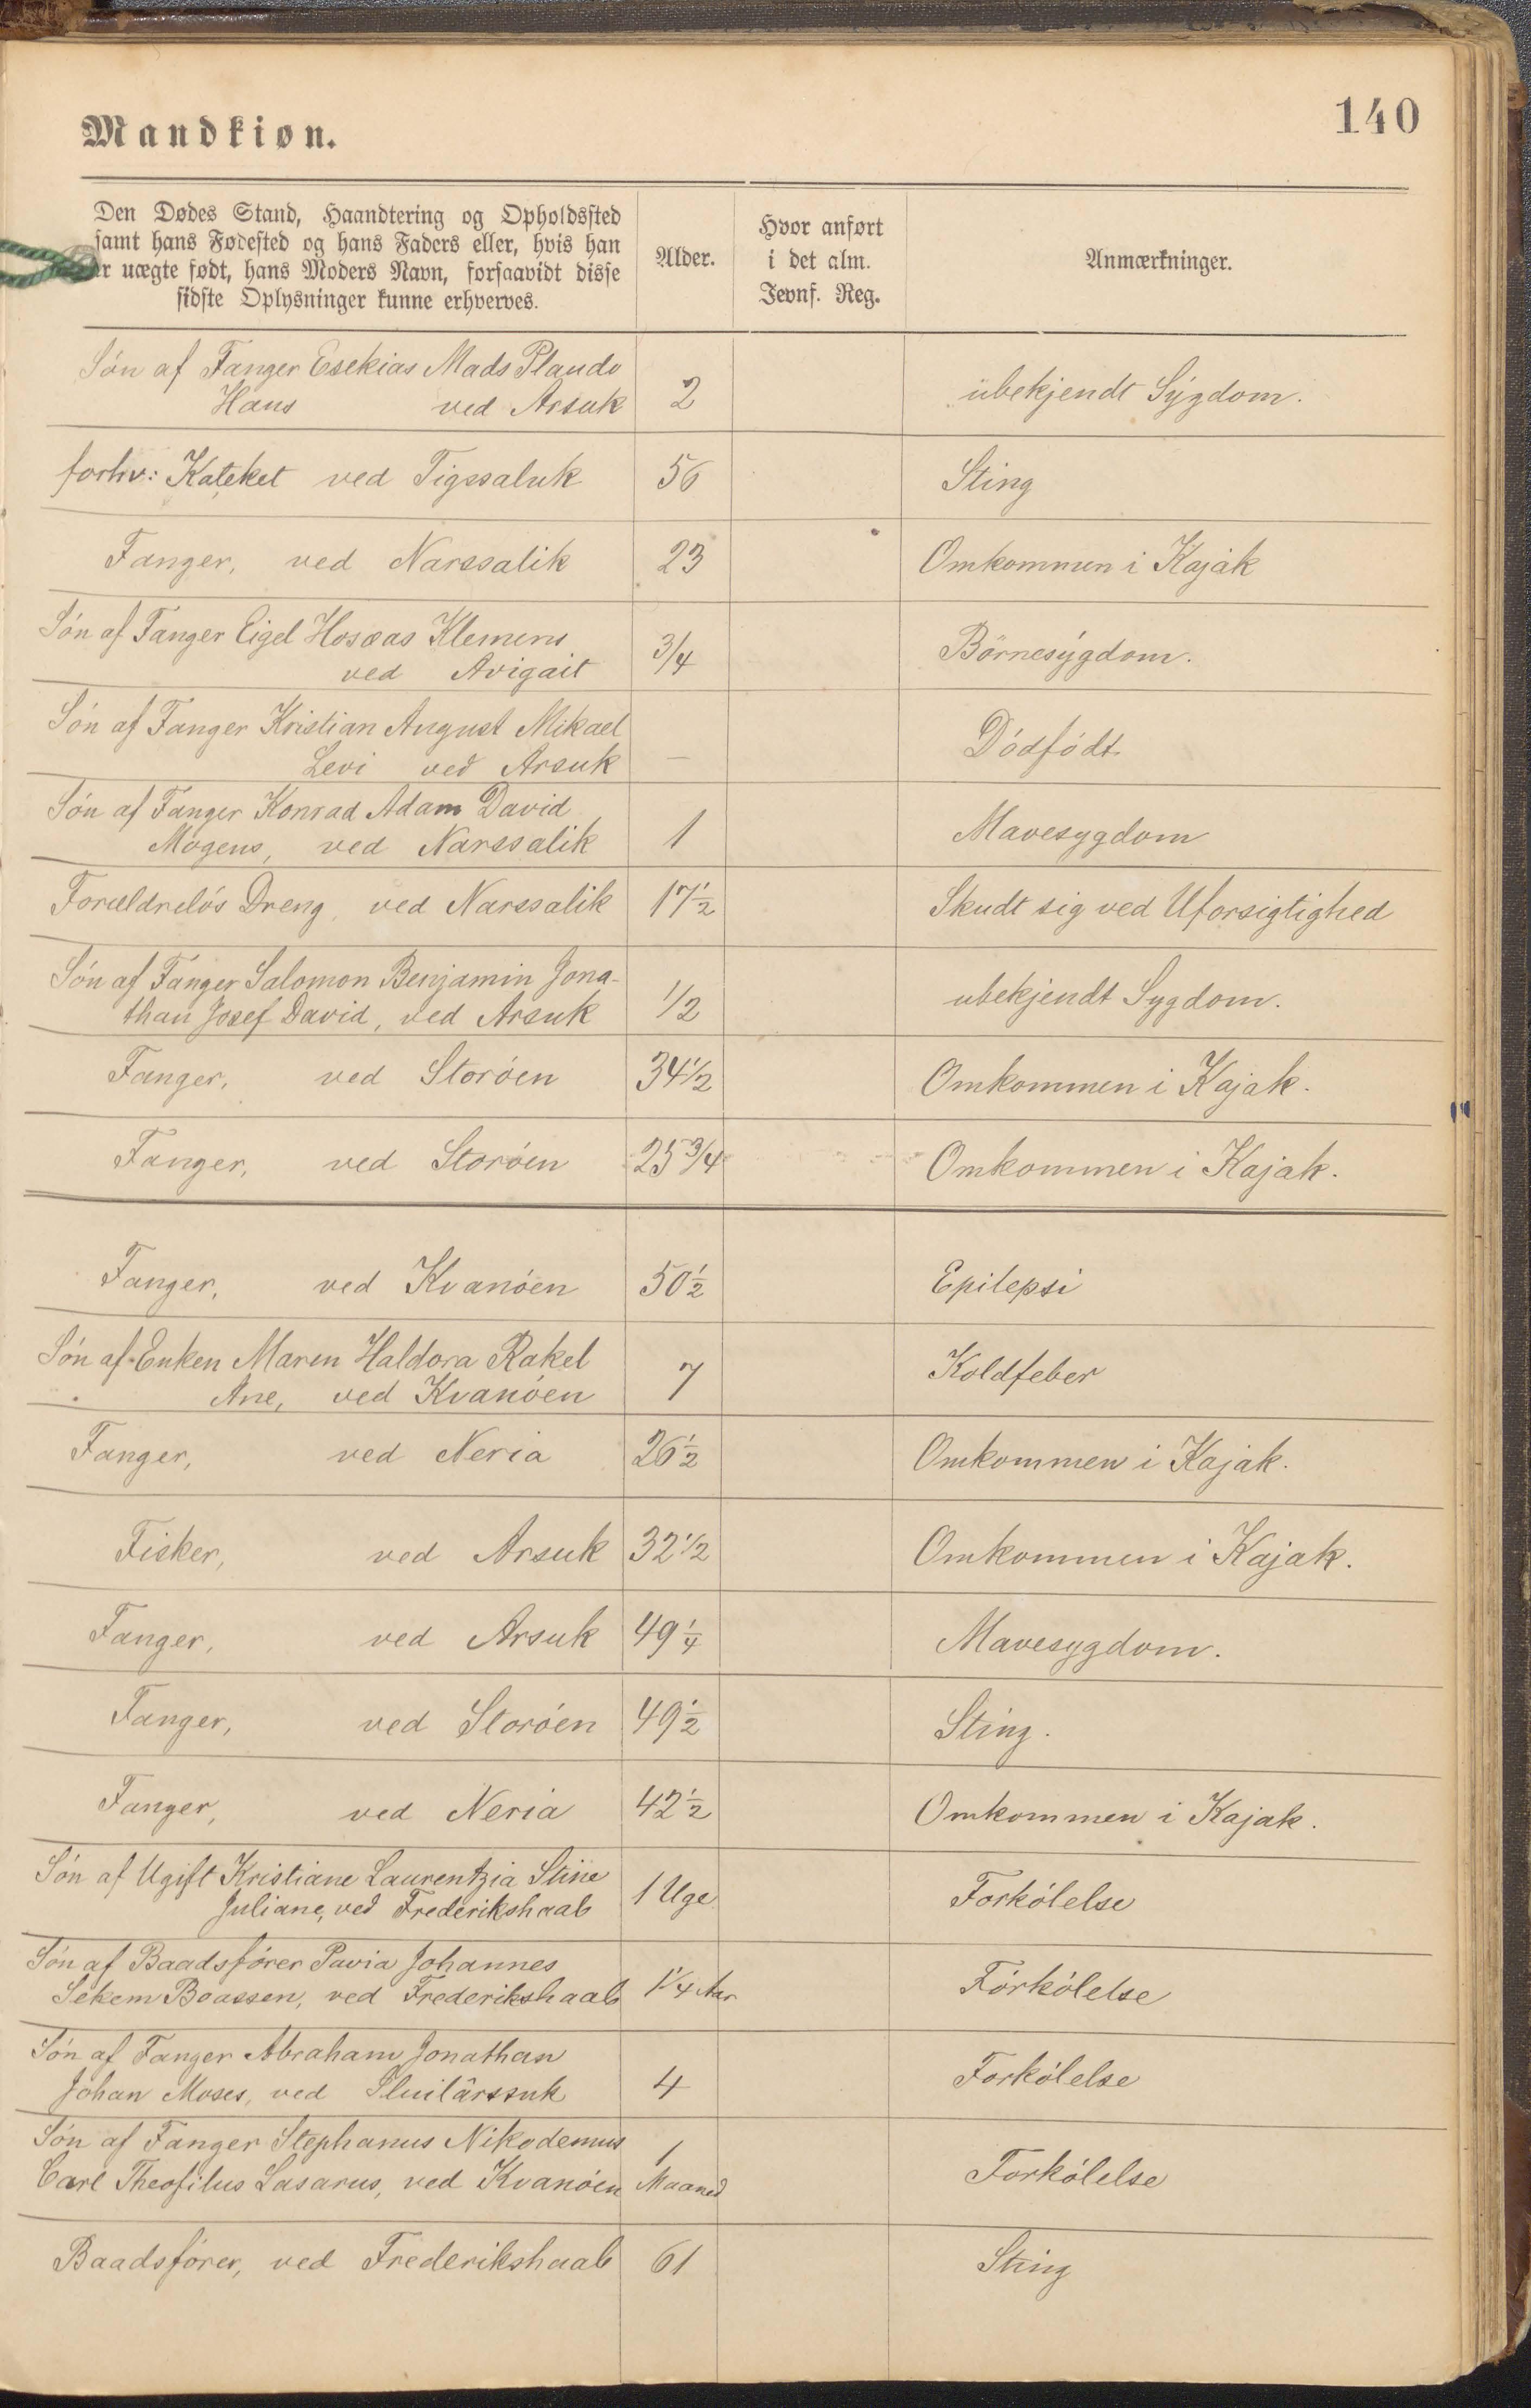 Mandkiøn.
140
Den Dødes Stand, Haandtering og Opholdssted
samt hans Fødested og hans Faders eller, hvis han
er uægte født, hans Moders Navn, forsaavidt disse
sidste Oplysninger kunne erhverves.
Alder.
Hvor anført
i det alm.
Jevnf. Reg.
Anmærkninger.
Søn af Fanger Esekias Mads Plaudo
Hans ved Arsuk 2 ubekjendt Sygdom.
forhv: Kateket ved Tigssaluk 56 Sting
Fanger, ved Narssalik 23 Omkommen i Kajak
Søn af Fanger Eigel Hoseas Klemens
ved Avigait 3/4 Börnesygdom.
Søn af Fanger Kristian August Mikael
Levi ved Arsuk — Dödfödt.
Søn af Fanger Konrad Adam David
Mogens, ved Narssalik 1 Mavesygdom
Forældreløs Dreng, ved Narssalik 17½ Skudt sig ved Uforsigtighed
Søn af Fanger Salomon Benjamin Jona-
than Josef David, ved Arsuk 1/2 ubekjendt Sygdom.
Fanger, ved Storøen 34½ Omkommen i Kajak.
Fanger, ved Storøen 25¾ Omkommen i Kajak.
Fanger, ved Kvanøen 50½ Epilepsi
Søn af Enken Maren Haldora Rakel
Ane, ved Kvanøen 7 Koldfeber
Fanger, ved Neria 26½ Omkommen i Kajak.
Fisker, ved Arsuk 32½ Omkommen i Kajak.
Fanger, ved Arsuk 49¼ Mavesygdom.
Fanger, ved Storøen 49½ Sting.
Fanger, ved Neria 42½ Omkommen i Kajak.
Søn af Ugift Kristiane Laurentzia Stine
Juliane, ved Frederikshaab 1 Uge Forkølelse
Søn af Baadsfører Pavia Johannes
Sekem Boassen, ved Frederikshaab 1¼ Aar Forkølelse
Søn af Fanger Abraham Jonathan
Johan Moses, ved Iluilârssuk 4 Forkølelse
Søn af Fanger Stephanus Nikodemus 1
Carl Theofilus Lasarus, ved Kvanøen Maaned Forkølelse
Baadsfører, ved Frederikshaab 61 Sting